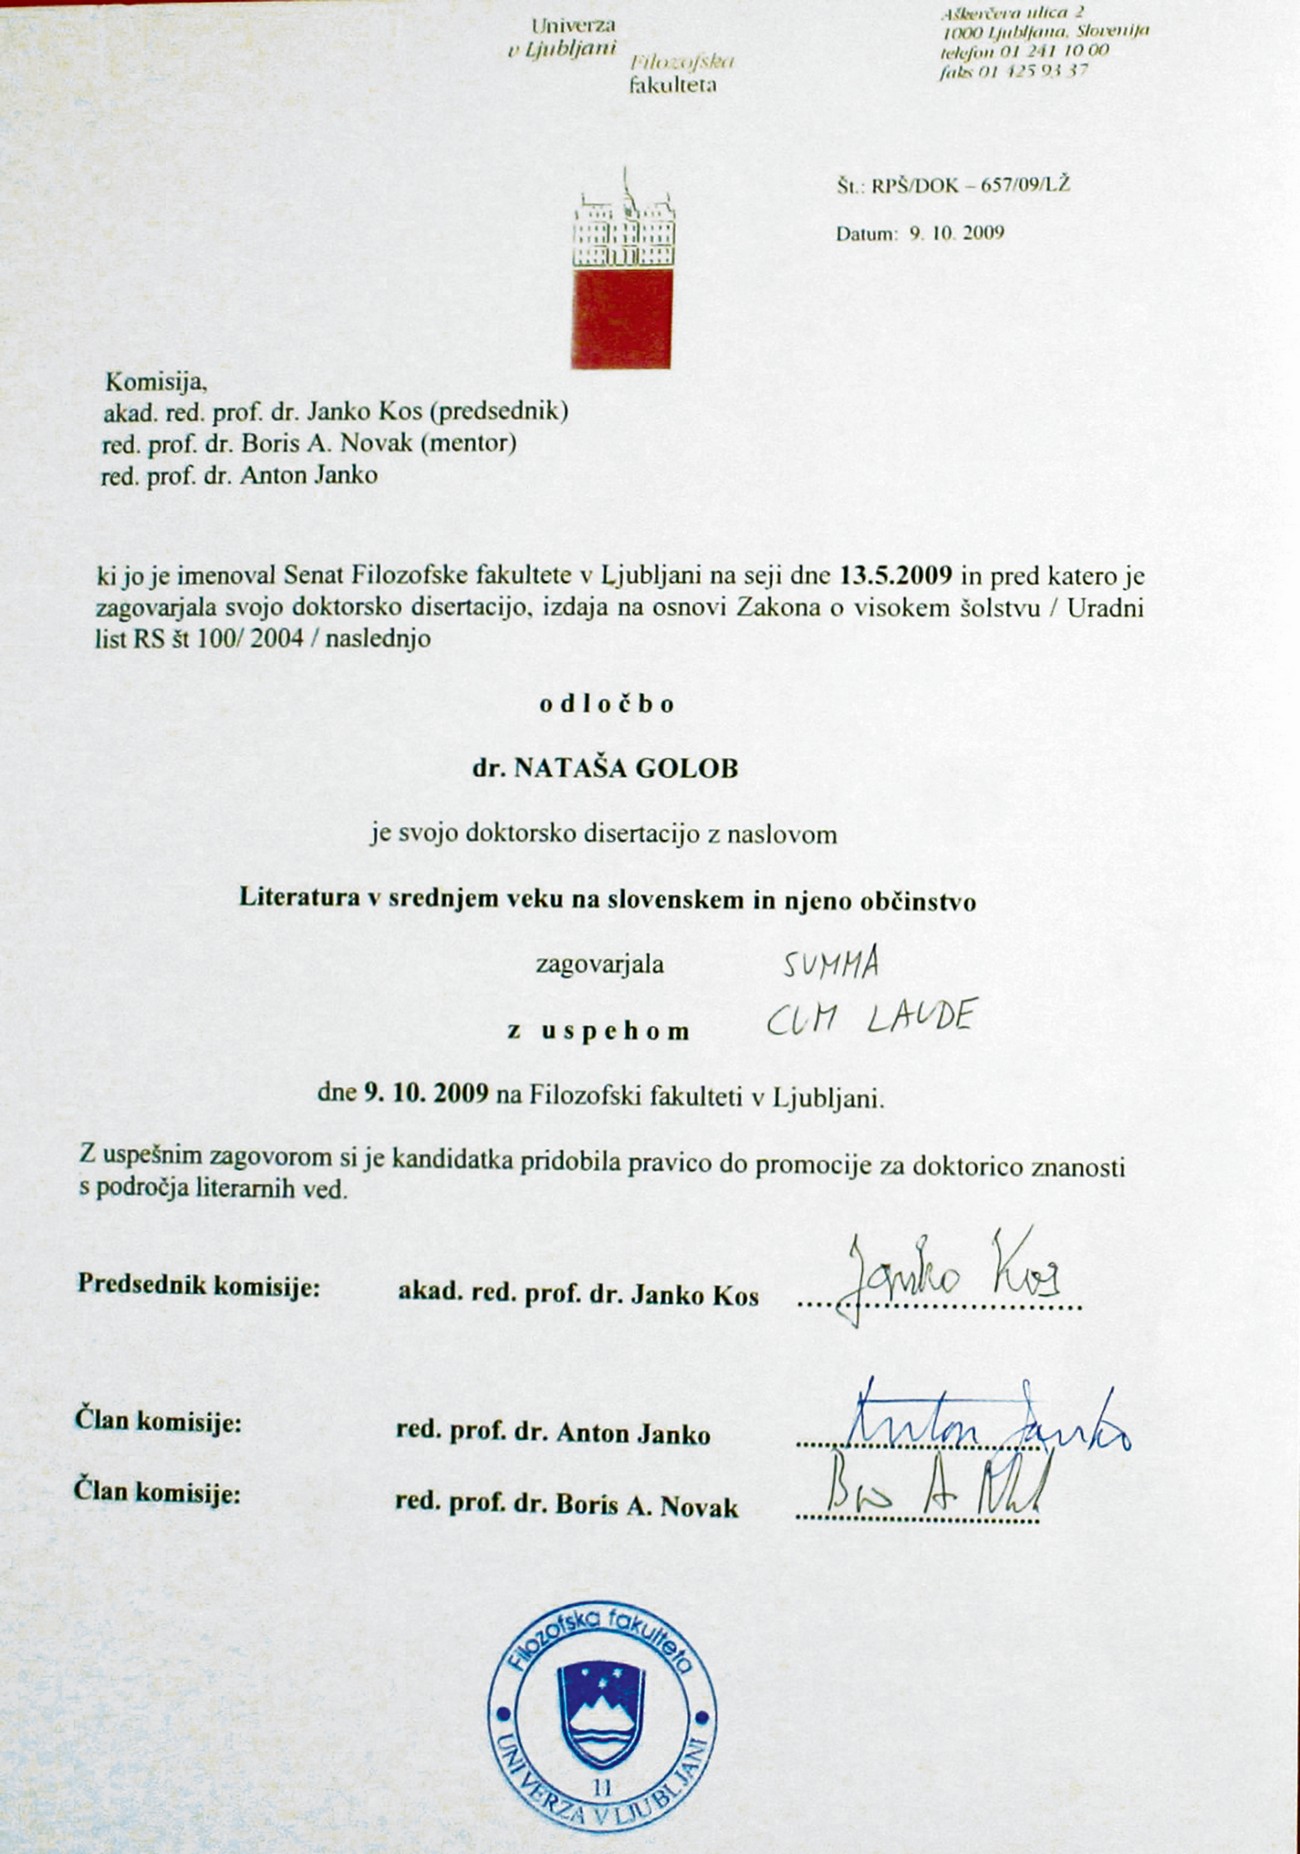 Univerza
v Ljubljani
Filozofska
fakulteta
Aškerčeva ulica 2
1000 Ljubljana, Slovenija
telefon 01 241 10 00
faks 01 425 93 37
Št.: RPŠ/DOK – 657/09/LŽ
Datum: 9. 10. 2009
Komisija,
akad. red. prof. dr. Janko Kos (predsednik)
red. prof. dr. Boris A. Novak (mentor)
red. prof. dr. Anton Janko
ki jo je imenoval Senat Filozofske fakultete v Ljubljani na seji dne 13.5.2009 in pred katero je
zagovarjala svojo doktorsko disertacijo, izdaja na osnovi Zakona o visokem šolstvu / Uradni
list RS št 100/ 2004 / naslednjo
odločbo
dr. NATAŠA GOLOB
je svojo doktorsko disertacijo z naslovom
Literatura v srednjem veku na slovenskem in njeno občinstvo
zagovarjala SUMMA
z uspehom CUM LAUDE
dne 9. 10. 2009 na Filozofski fakulteti v Ljubljani.
Z uspešnim zagovorom si je kandidatka pridobila pravico do promocije za doktorico znanosti
s področja literarnih ved.
Predsednik komisije: akad. red. prof. dr. Janko Kos Janko Kos
Član komisije: red. prof. dr. Anton Janko Anton Janko
Član komisije: red. prof. dr. Boris A. Novak
Filozofska fakulteta
11
UNIVERZA V LJUBLJANI